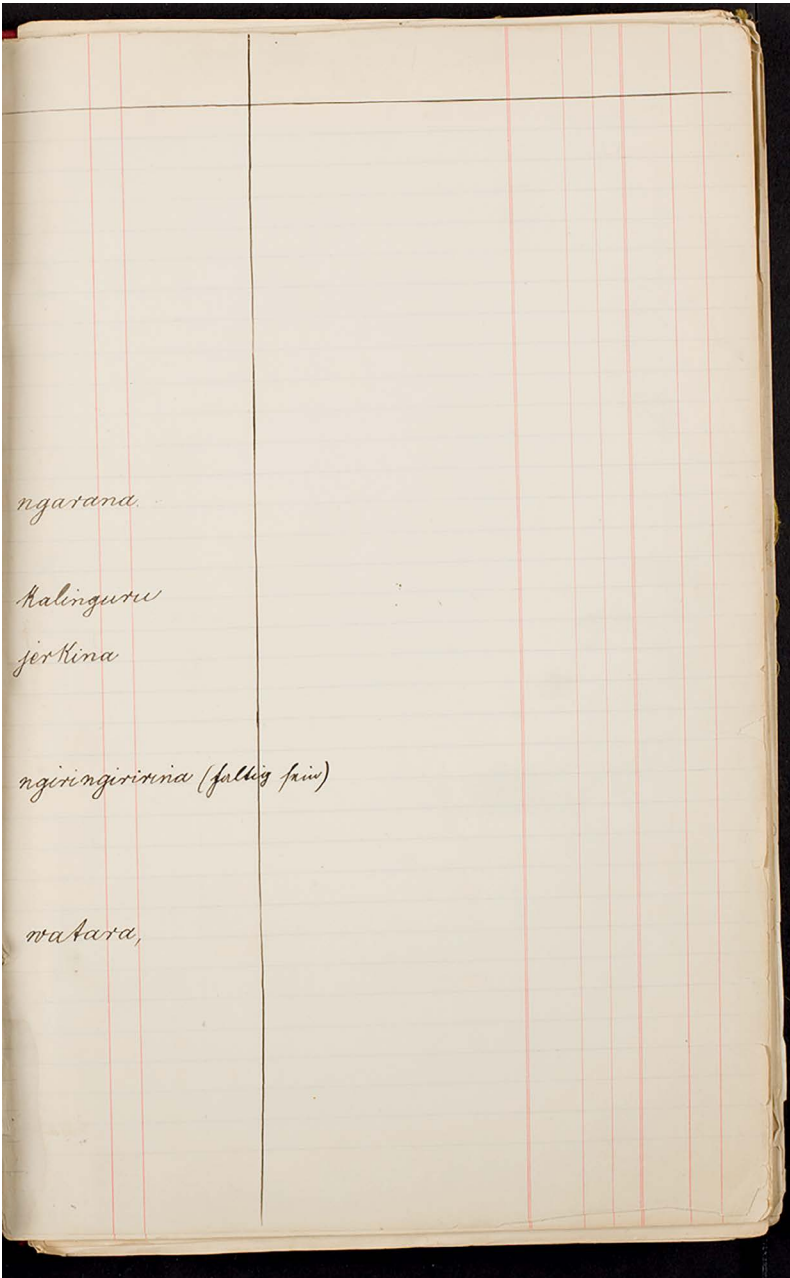 ngarana.
kalinguru
jerkina
ngiringiririna (faltig sein)
watara,